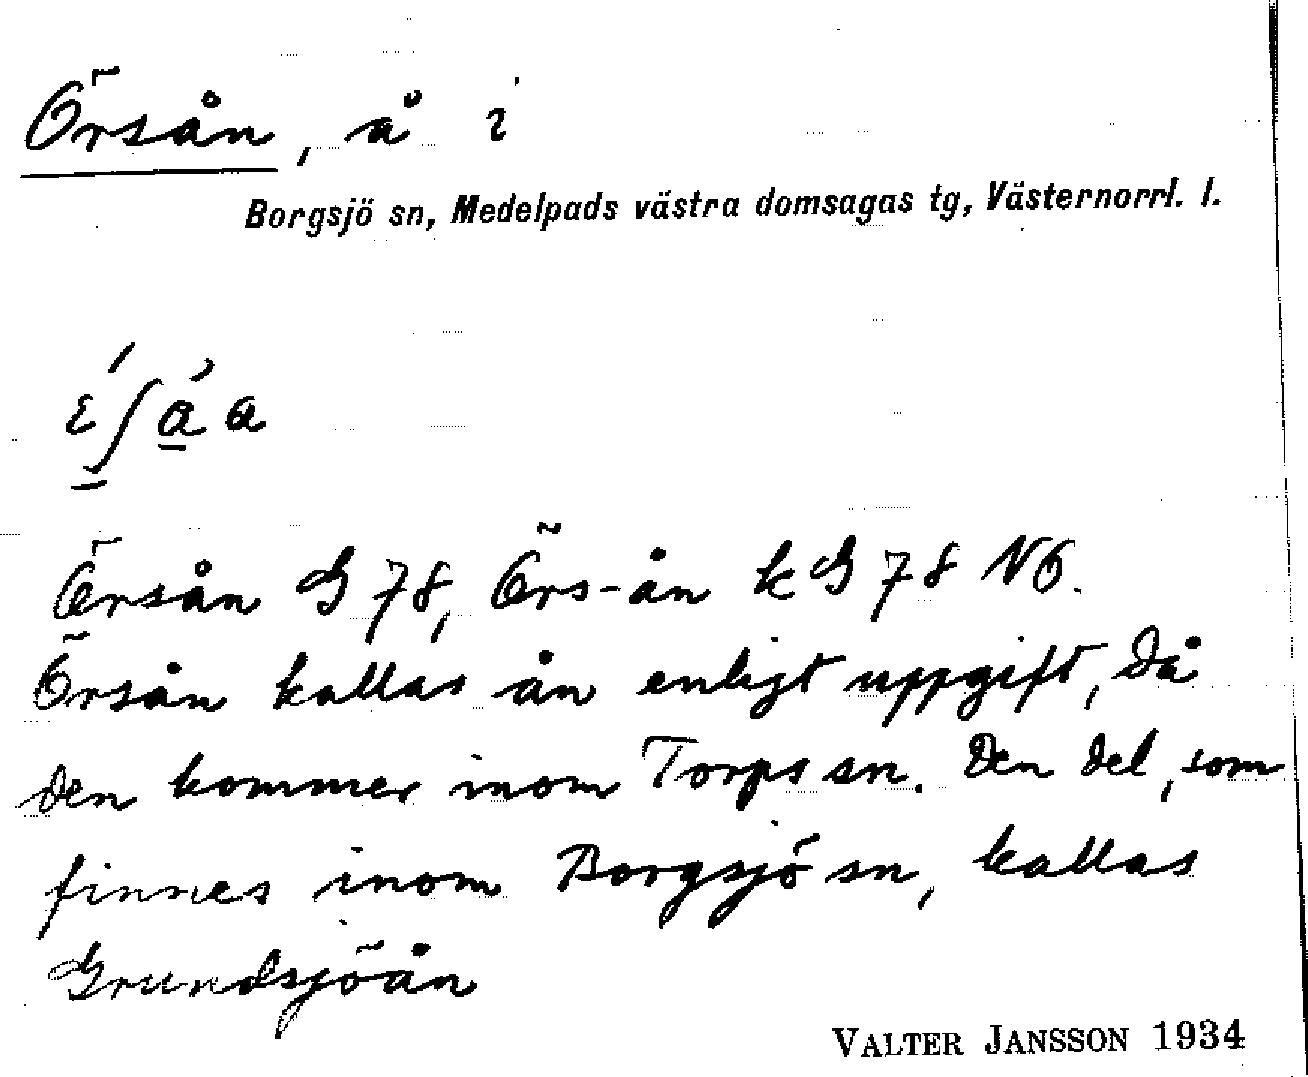 Örsån, å i
Borgsjö sn, Medelpads västra domsagas tg, Västernorrl. l.
Örsån G 78, Örs-ån k G 78 NO.
Örsån kallas ån enligt uppgift, då
den kommer inom Torps sn. Den del, som
finnes inom Borgsjö sn, kallas
Grundsjöån
VALTER JANSSON 1934